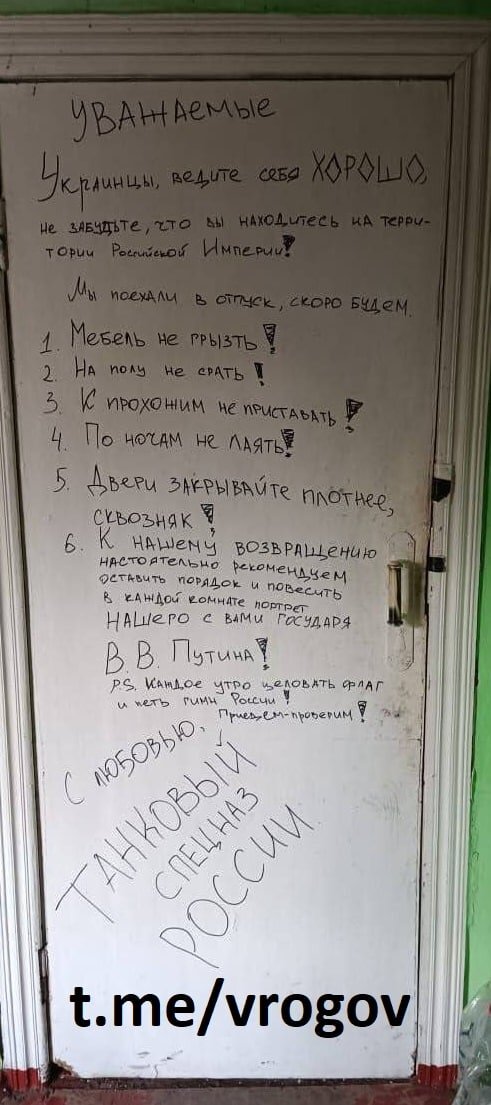 УВАЖАЕМЫЕ
Украинцы, ведите себя ХОРОШО,
не забудьте, что вы находитесь на терри-
тории Российской Империи!
Мы поехали в отпуск, скоро будем.
1. Мебель не грызть!
2. На полу не срать!
3. К прохожим не приставать!
4. По ночам не лаять!
5. Двери закрывайте плотнее,
сквозняк!
6. К нашему возвращению
настоятельно рекомендуем
оставить порядок и повесить
в каждой комнате портрет
нашего с вами государя
В. В. Путина!
P.S. Каждое утро целовать флаг
и петь гимн России!
Приедем-проверим!
С любовью,
ТАНКОВЫЙ
СПЕЦНАЗ
РОССИИ
t.me/vrogov